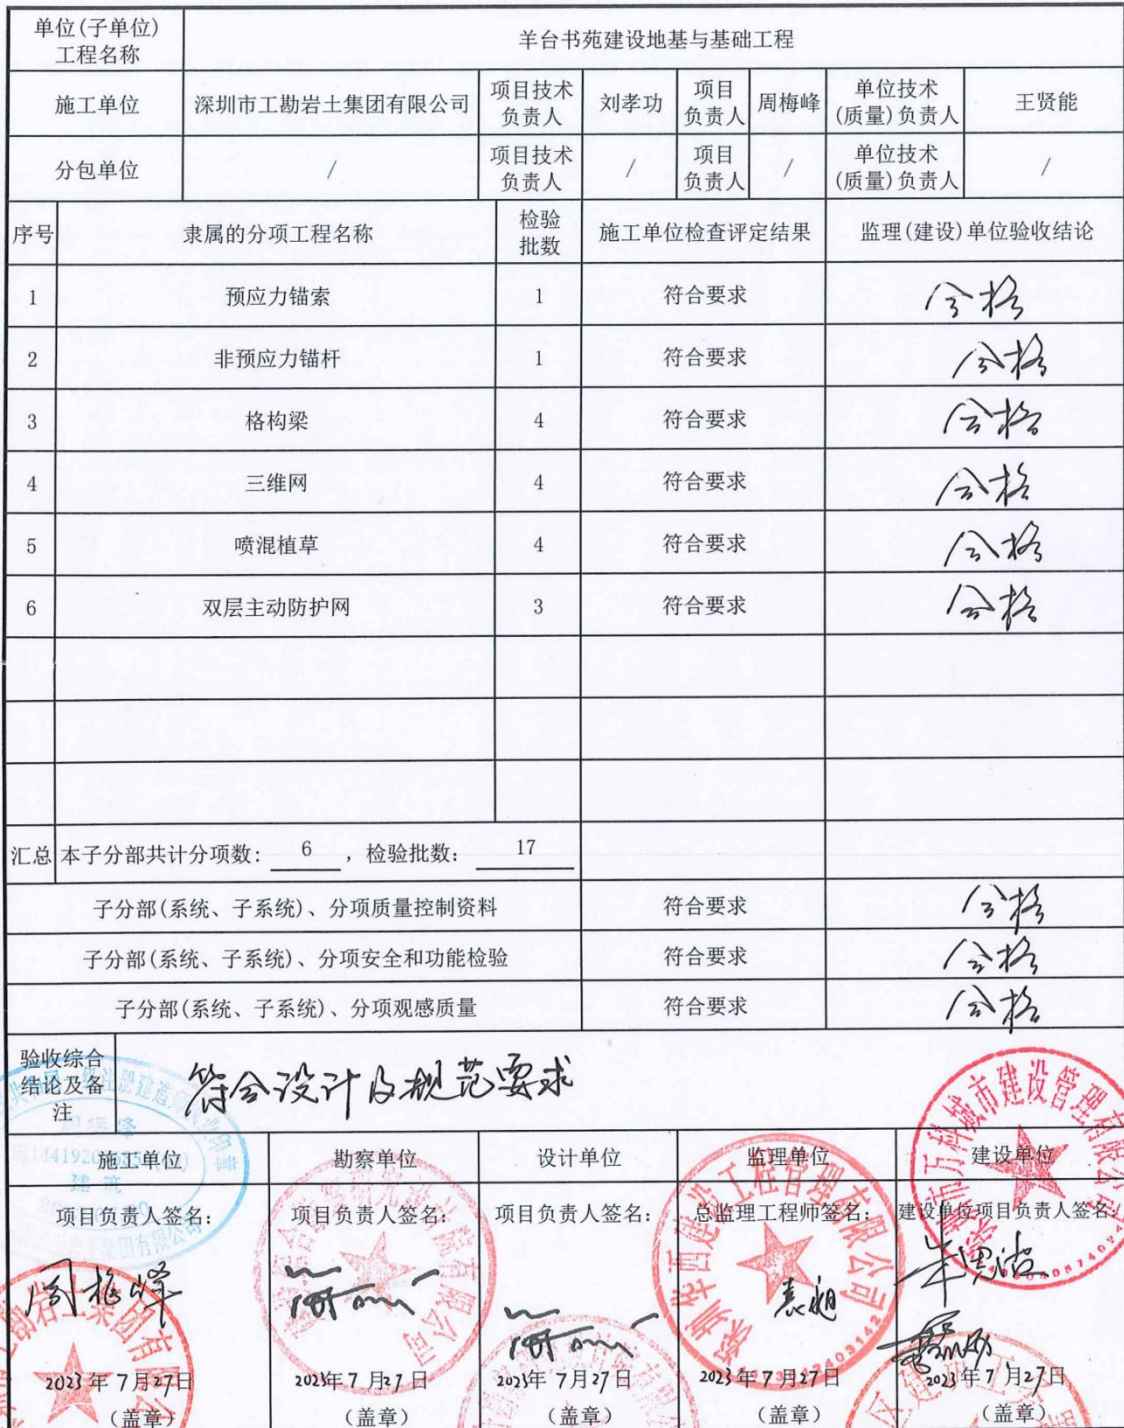 单位(子单位)
工程名称
羊台书苑建设地基与基础工程
施工单位
深圳市工勘岩土集团有限公司
项目技术
负责人
刘孝功
项目
负责人
周梅峰
单位技术
(质量)负责人
王贤能
分包单位
/
项目技术
负责人
/
项目
负责人
/
单位技术
(质量)负责人
/
序号 隶属的分项工程名称
检验
批数
施工单位检查评定结果 监理(建设)单位验收结论
1 预应力锚索 1 符合要求 合格
2 非预应力锚杆 1 符合要求 合格
3 格构梁 4 符合要求 合格
4 三维网 4 符合要求 合格
5 喷混植草 4 符合要求 合格
6 双层主动防护网 3 符合要求 合格
汇总 本子分部共计分项数: 6 ,检验批数: 17
子分部(系统、子系统)、分项质量控制资料 符合要求 合格
子分部(系统、子系统)、分项安全和功能检验 符合要求 合格
子分部(系统、子系统)、分项观感质量 符合要求 合格
验收综合
结论及备
注
符合设计及规范要求
施工单位 勘察单位 设计单位 监理单位 建设单位
项目负责人签名: 项目负责人签名: 项目负责人签名: 总监理工程师签名: 建设单位项目负责人签名:
周梅峰
2023年7月27日 2023年7月27日 2023年7月27日 2023年7月27日 2023年7月27日
(盖章) (盖章) (盖章) (盖章) (盖章)
深圳华西建设工程管理有限公司
市万科城市建设管理有限公司